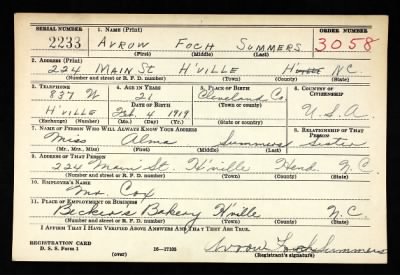 SERIAL NUMBER 1. NAME (Print) ORDER NUMBER
2233 AVROW FOCH SUMMERS 3058
(First) (Middle) (Last)
2. ADDRESS (Print)
224 MAIN ST H'VILLE N.C.
(Number and street or R. F. D. number) (Town) (County) (State)
3. TELEPHONE 4. AGE IN YEARS 5. PLACE OF BIRTH 6. COUNTRY OF CITIZENSHIP
837 W 21 Cleveland Co.
H'VILLE DATE OF BIRTH Feb. 4 1919 U.S.A
(Exchange) (Number) (Mo.) (Day) (Yr.) (State or country)
7. NAME OF PERSON WHO WILL ALWAYS KNOW YOUR ADDRESS 8. RELATIONSHIP OF THAT PERSON
Miss Alma Summers Sister
(Mr. Mrs. Miss) (First) (Middle) (Last)
9. ADDRESS OF THAT PERSON
224 Main St. H'ville Hend. N.C
(Number and street or R. F. D. number) (Town) (County) (State)
10. EMPLOYER'S NAME
Mr. Cox
11. PLACE OF EMPLOYMENT OR BUSINESS
Becker's Bakery H'ville N.C.
(Number and street or R. F. D. number) (Town) (County) (State)
I AFFIRM THAT I HAVE VERIFIED ABOVE ANSWERS AND THAT THEY ARE TRUE.
REGISTRATION CARD
D. S. S. Form 1 16—17105 Avrow Foch Summers
(over) (Registrant's signature)